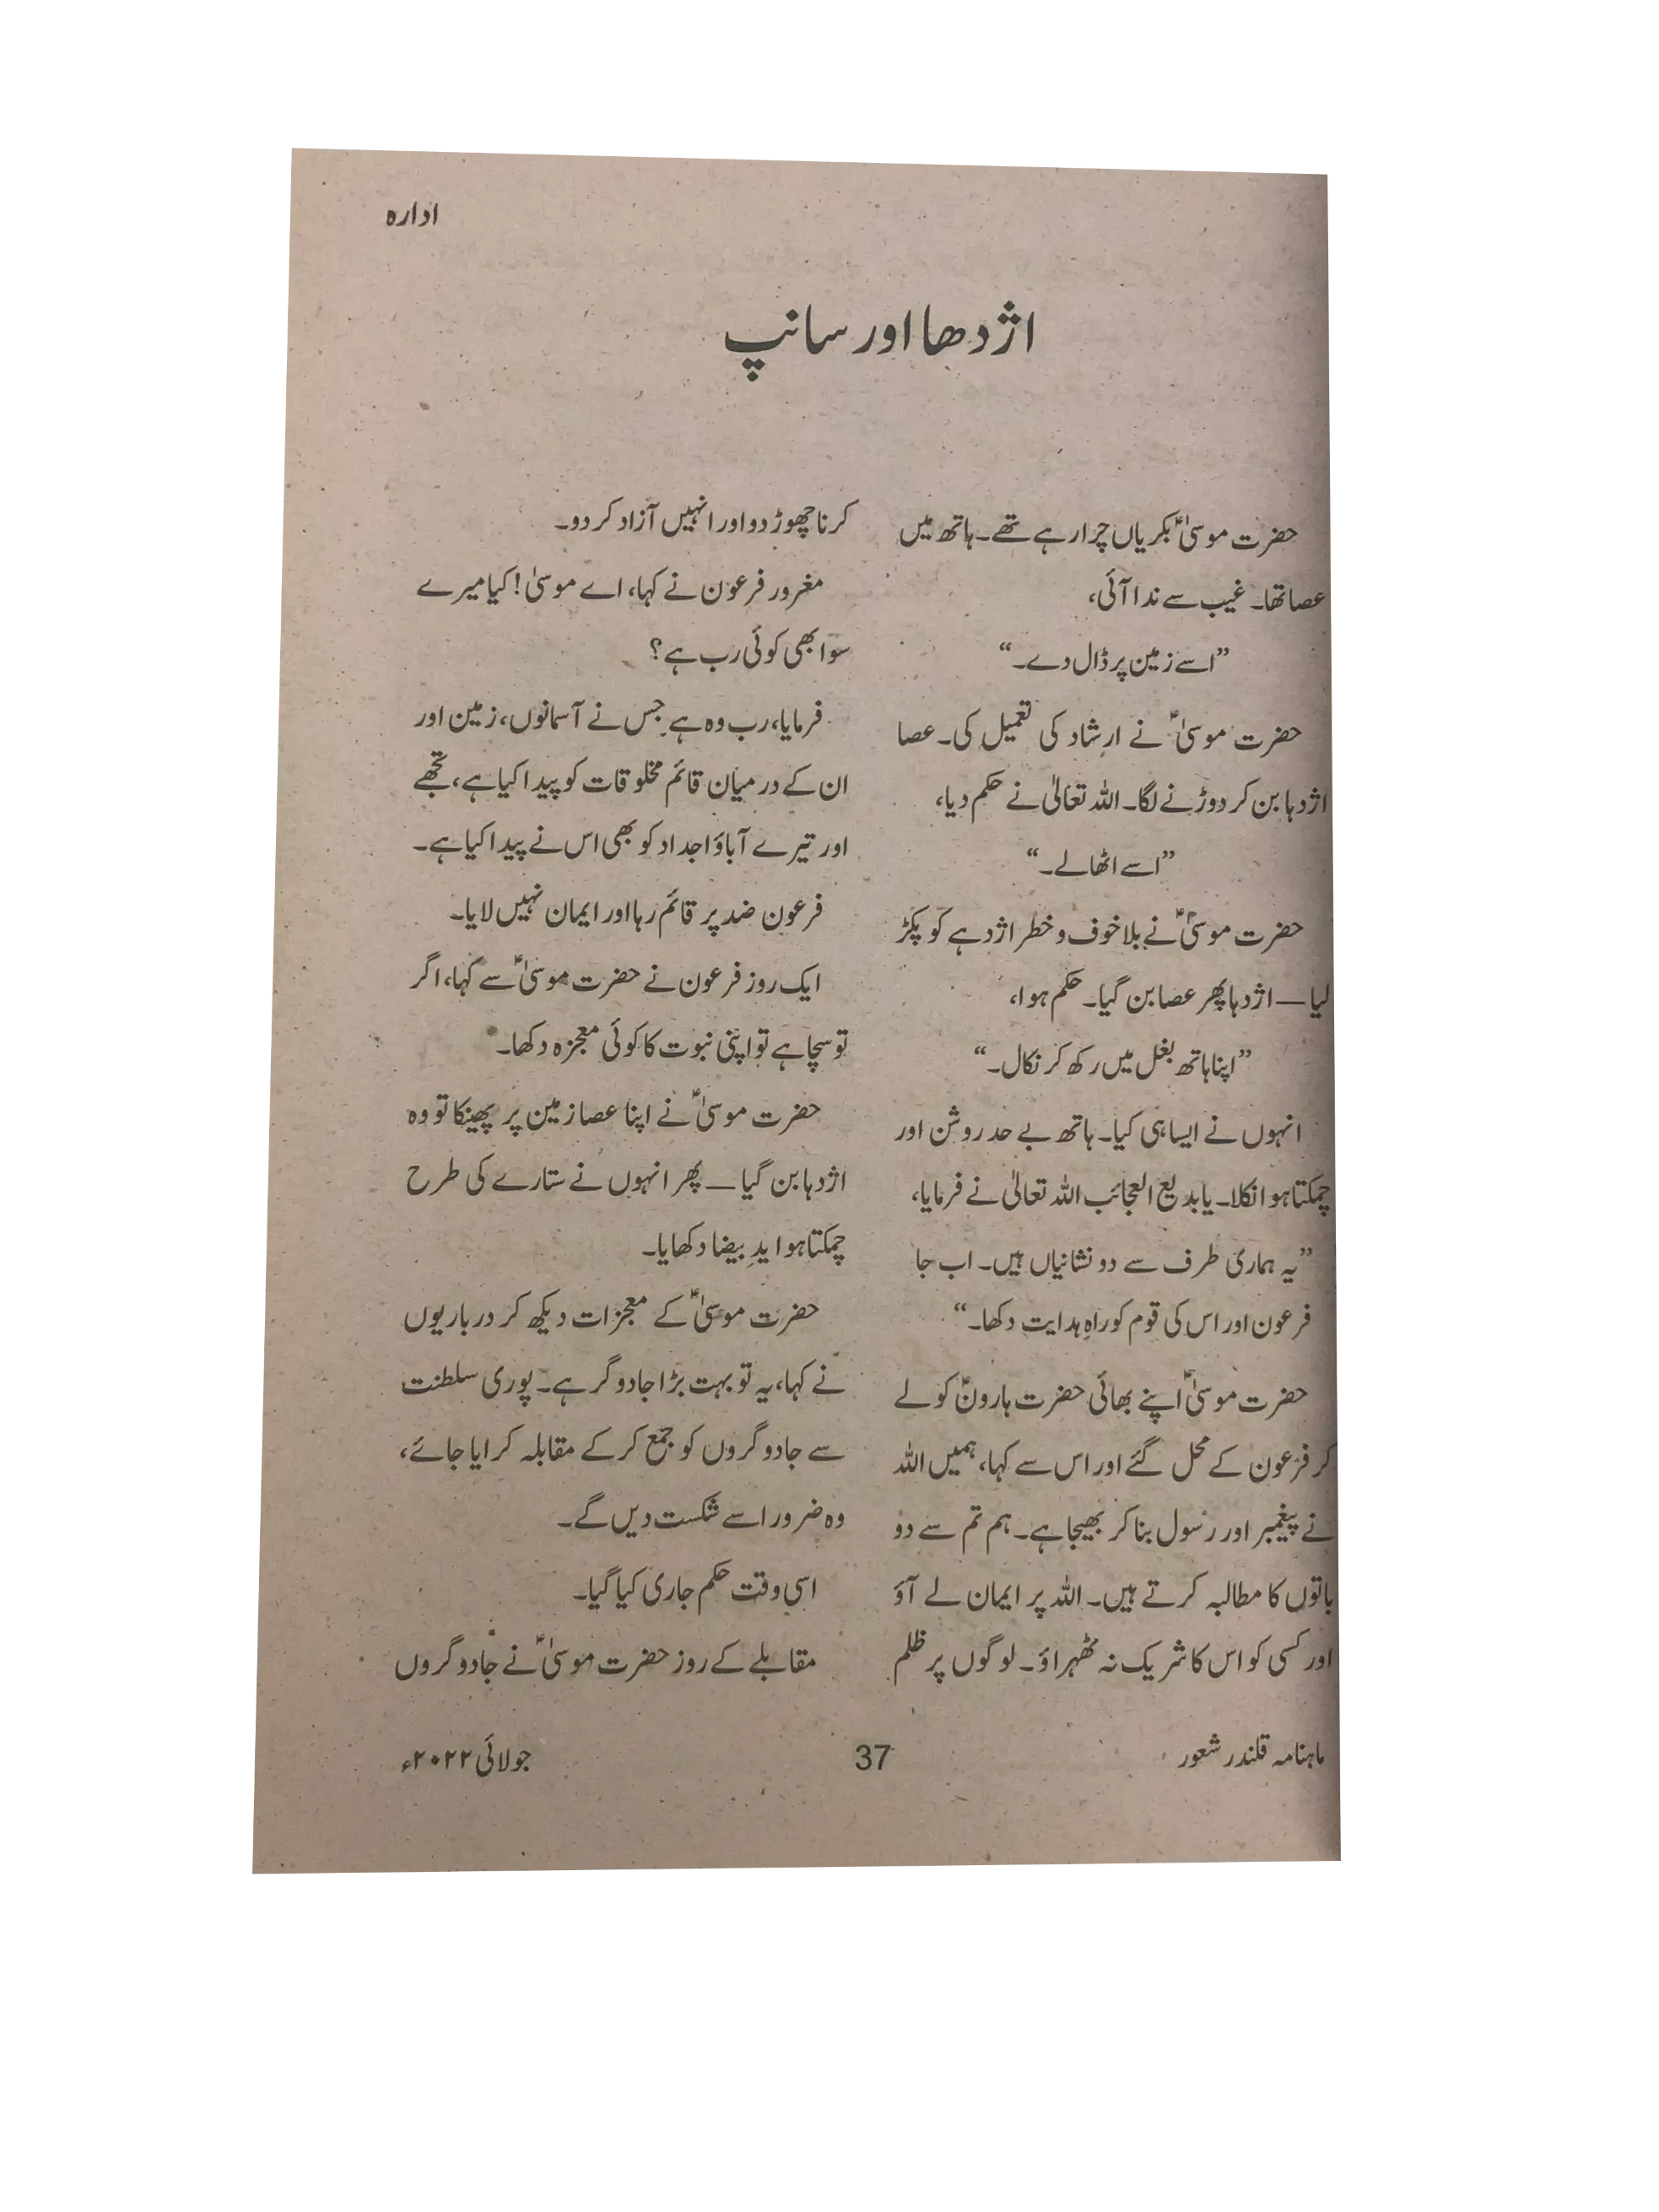 ادارہ
اژدھا اور سانپ
حضرت موسیٰؑ بکریاں چرا رہے تھے۔ ہاتھ میں
عصا تھا۔ غیب سے ندا آئی،
”اسے زمین پر ڈال دے۔“
حضرت موسیٰؑ نے ارشاد کی تعمیل کی۔ عصا
اژدہا بن کر دوڑنے لگا۔ اللہ تعالیٰ نے حکم دیا،
”اسے اٹھا لے۔“
حضرت موسیٰؑ نے بلا خوف و خطر اژدہے کو پکڑ
لیا — اژدہا پھر عصا بن گیا۔ حکم ہوا،
”اپنا ہاتھ بغل میں رکھ کر نکال۔“
انہوں نے ایسا ہی کیا۔ ہاتھ بے حد روشن اور
چمکتا ہوا نکلا۔ یا بدیع العجائب اللہ تعالیٰ نے فرمایا،
”یہ ہماری طرف سے دو نشانیاں ہیں۔ اب جا
فرعون اور اس کی قوم کو راہِ ہدایت دکھا۔“
حضرت موسیٰؑ اپنے بھائی حضرت ہارونؑ کو لے
کر فرعون کے محل گئے اور اس سے کہا، ہمیں اللہ
نے پیغمبر اور رسول بنا کر بھیجا ہے۔ ہم تم سے دو
باتوں کا مطالبہ کرتے ہیں۔ اللہ پر ایمان لے آؤ
اور کسی کو اس کا شریک نہ ٹھہراؤ۔ لوگوں پر ظلم
کرنا چھوڑ دو اور انہیں آزاد کر دو۔
مغرور فرعون نے کہا، اے موسیٰ! کیا میرے
سوا بھی کوئی رب ہے؟
فرمایا، رب وہ ہے جس نے آسمانوں، زمین اور
ان کے درمیان قائم مخلوقات کو پیدا کیا ہے، تجھے
اور تیرے آباؤ اجداد کو بھی اس نے پیدا کیا ہے۔
فرعون ضد پر قائم رہا اور ایمان نہیں لایا۔
ایک روز فرعون نے حضرت موسیٰؑ سے کہا، اگر
تو سچا ہے تو اپنی نبوت کا کوئی معجزہ دکھا۔
حضرت موسیٰؑ نے اپنا عصا زمین پر پھینکا تو وہ
اژدہا بن گیا — پھر انہوں نے ستارے کی طرح
چمکتا ہوا یدِ بیضا دکھایا۔
حضرت موسیٰؑ کے معجزات دیکھ کر درباریوں
نے کہا، یہ تو بہت بڑا جادوگر ہے۔ پوری سلطنت
سے جادوگروں کو جمع کر کے مقابلہ کرایا جائے،
وہ ضرور اسے شکست دیں گے۔
اسی وقت حکم جاری کیا گیا۔
مقابلے کے روز حضرت موسیٰؑ نے جادوگروں
ماہنامہ قلندر شعور
37
جولائی ۲۰۲۲ء